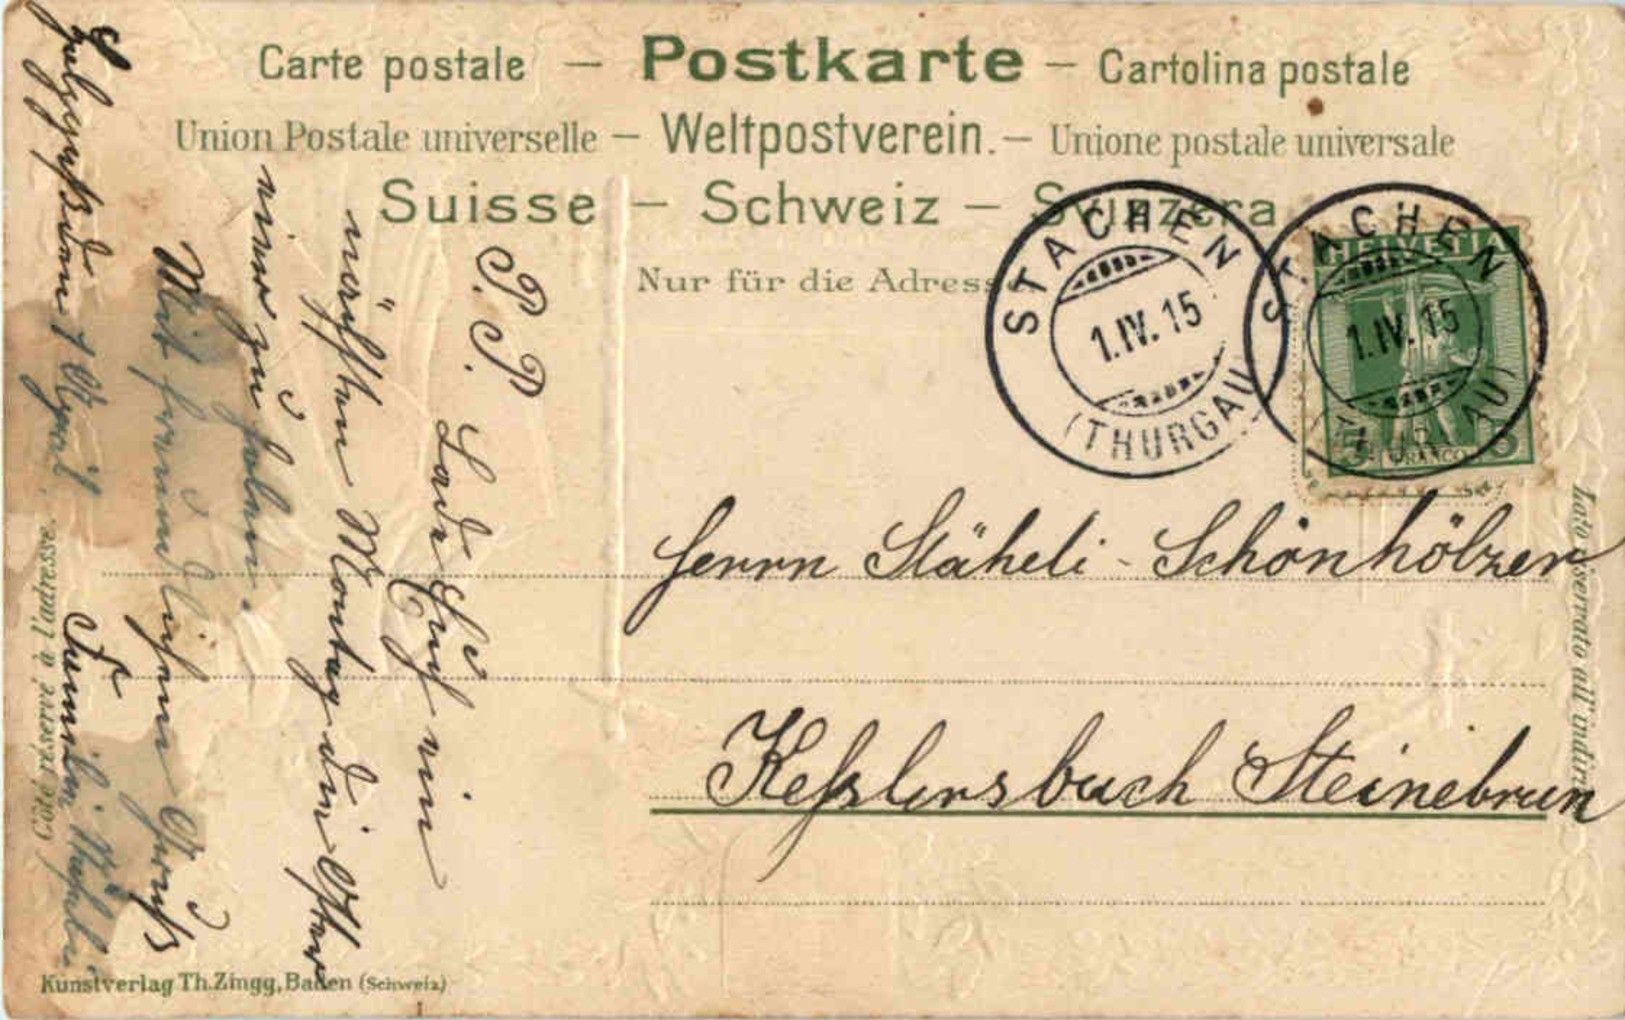 Carte postale — Postkarte — Cartolina postale
Union Postale universelle — Weltpostverein. — Unione postale universale
Suisse — Schweiz — Svizzera
Nur für die Adresse
STACHEN
1.IV.15
(THURGAU)
STACHEN
1.IV.15
(THURGAU)
HELVETIA
5 FRANCO 5
Herrn Stäheli-Schönhölzer
Kesslersbuch Steinebrun
P. P.
Lade Sie
Euch ein
nächsten Montag die Eier
hier zu holen.
Mit freundlichem Gruß
Familie
April
Côté réservé à l'adresse.
Lato riservato all'indirizzo
Kunstverlag Th. Zingg, Baden (Schweiz)